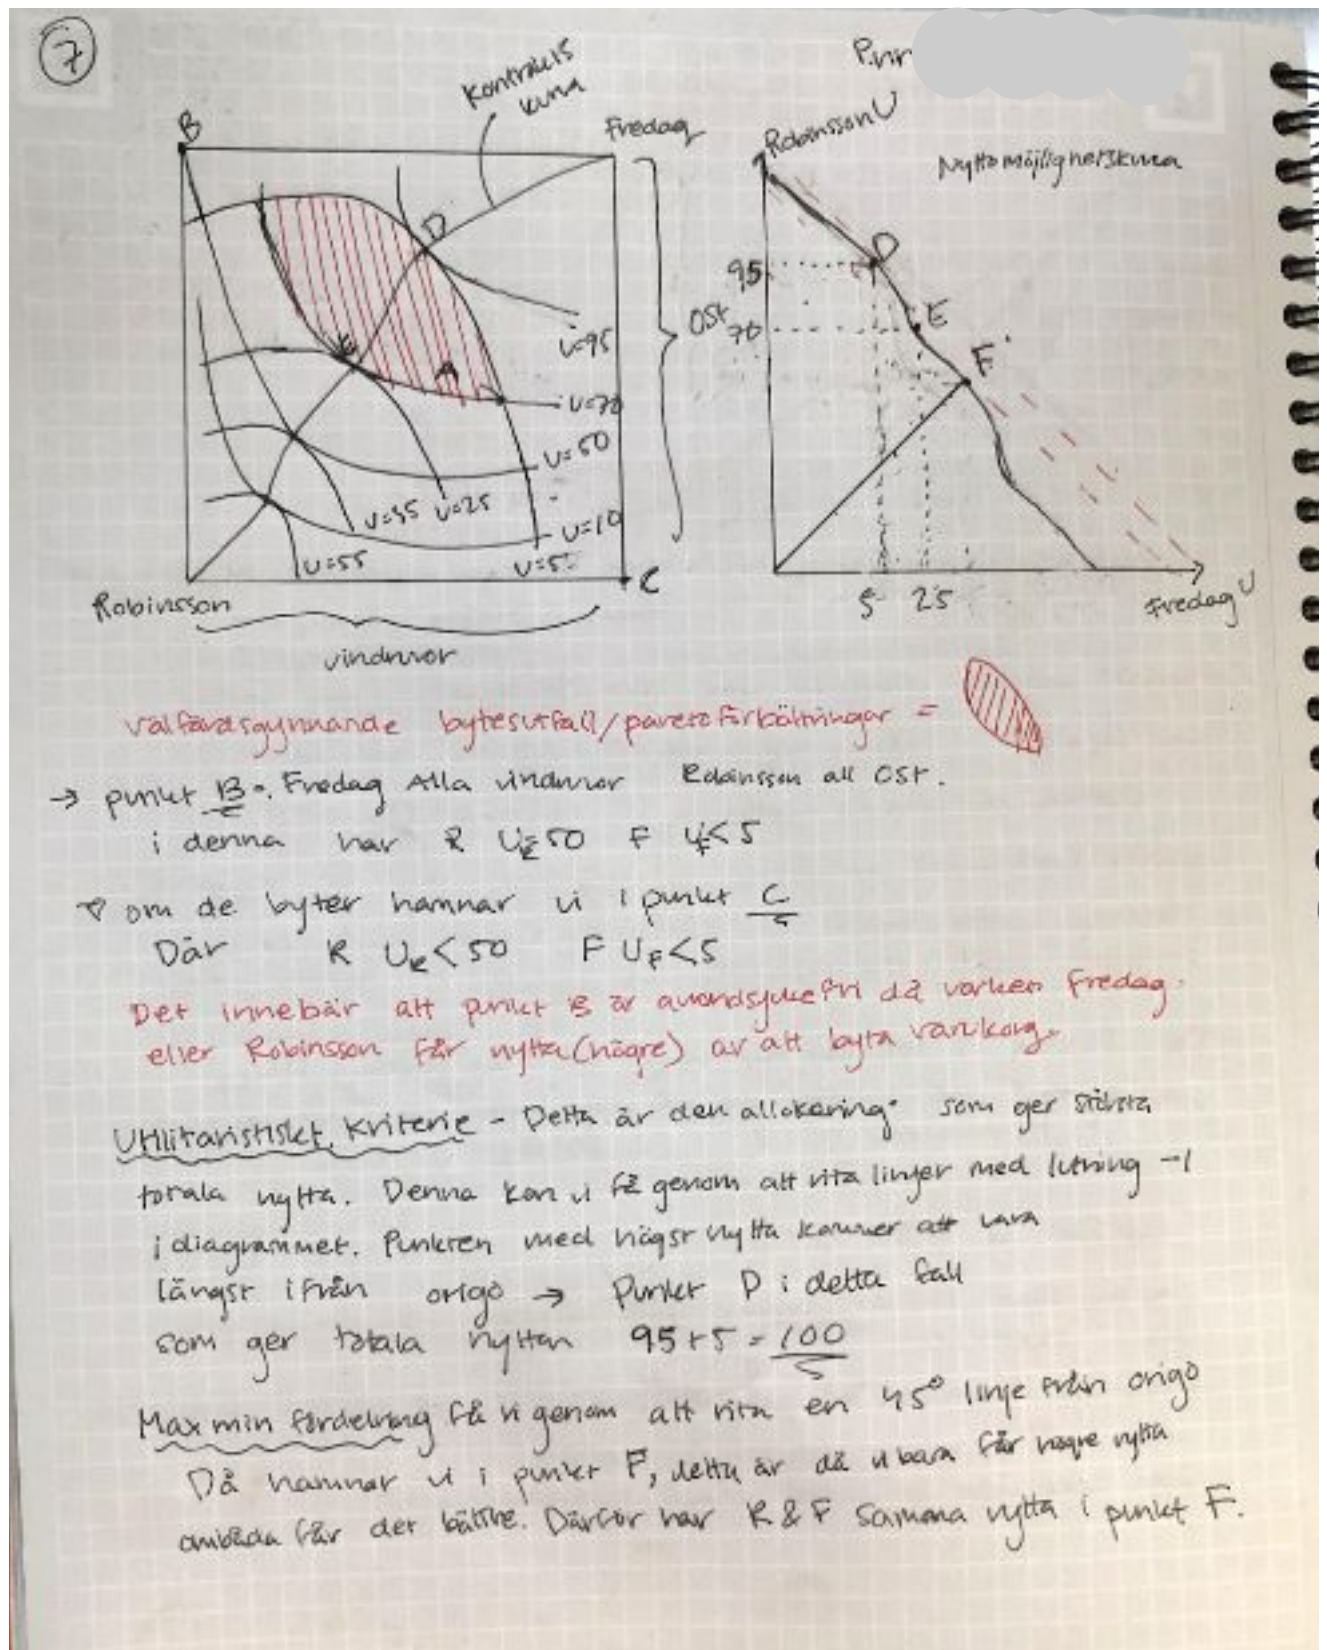 7
P.nr
Kontrakts
kurva
B
Fredag
Robinsson U
Nyttomöjlighetskurva
D
D
95
E
OST
70
E
U=95
E
A
U=70
U=50
U=35 U=25
U=10
U=55
U=5
C
5 25
Robinsson
Fredag U
vindruvor
välfärdsgynnande bytesutfall/paretoförbättringar =
→ punkt B. Fredag Alla vindruvor Robinsson all OST.
i denna har R U_R=50 F U_F<5
om de byter hamnar vi i punkt C
Där R U_R<50 F U_F<5
Det innebär att punkt B är avundsjukefri då varken Fredag
eller Robinsson får nytta (högre) av att byta varukorg.
Utilitaristiskt Kriterie - Detta är den allokering som ger största
totala nytta. Denna kan vi få genom att rita linjer med lutning -1
i diagrammet. Punkten med högst nytta kommer att vara
längst ifrån origo → Punkt D i detta fall
som ger totala nyttan 95+5=100
Max min fördelning får vi genom att rita en 45° linje från origo
Då hamnar vi i punkt F, detta är då vi bara får högre nytta
om båda får det bättre. Därför har R & F samma nytta i punkt F.